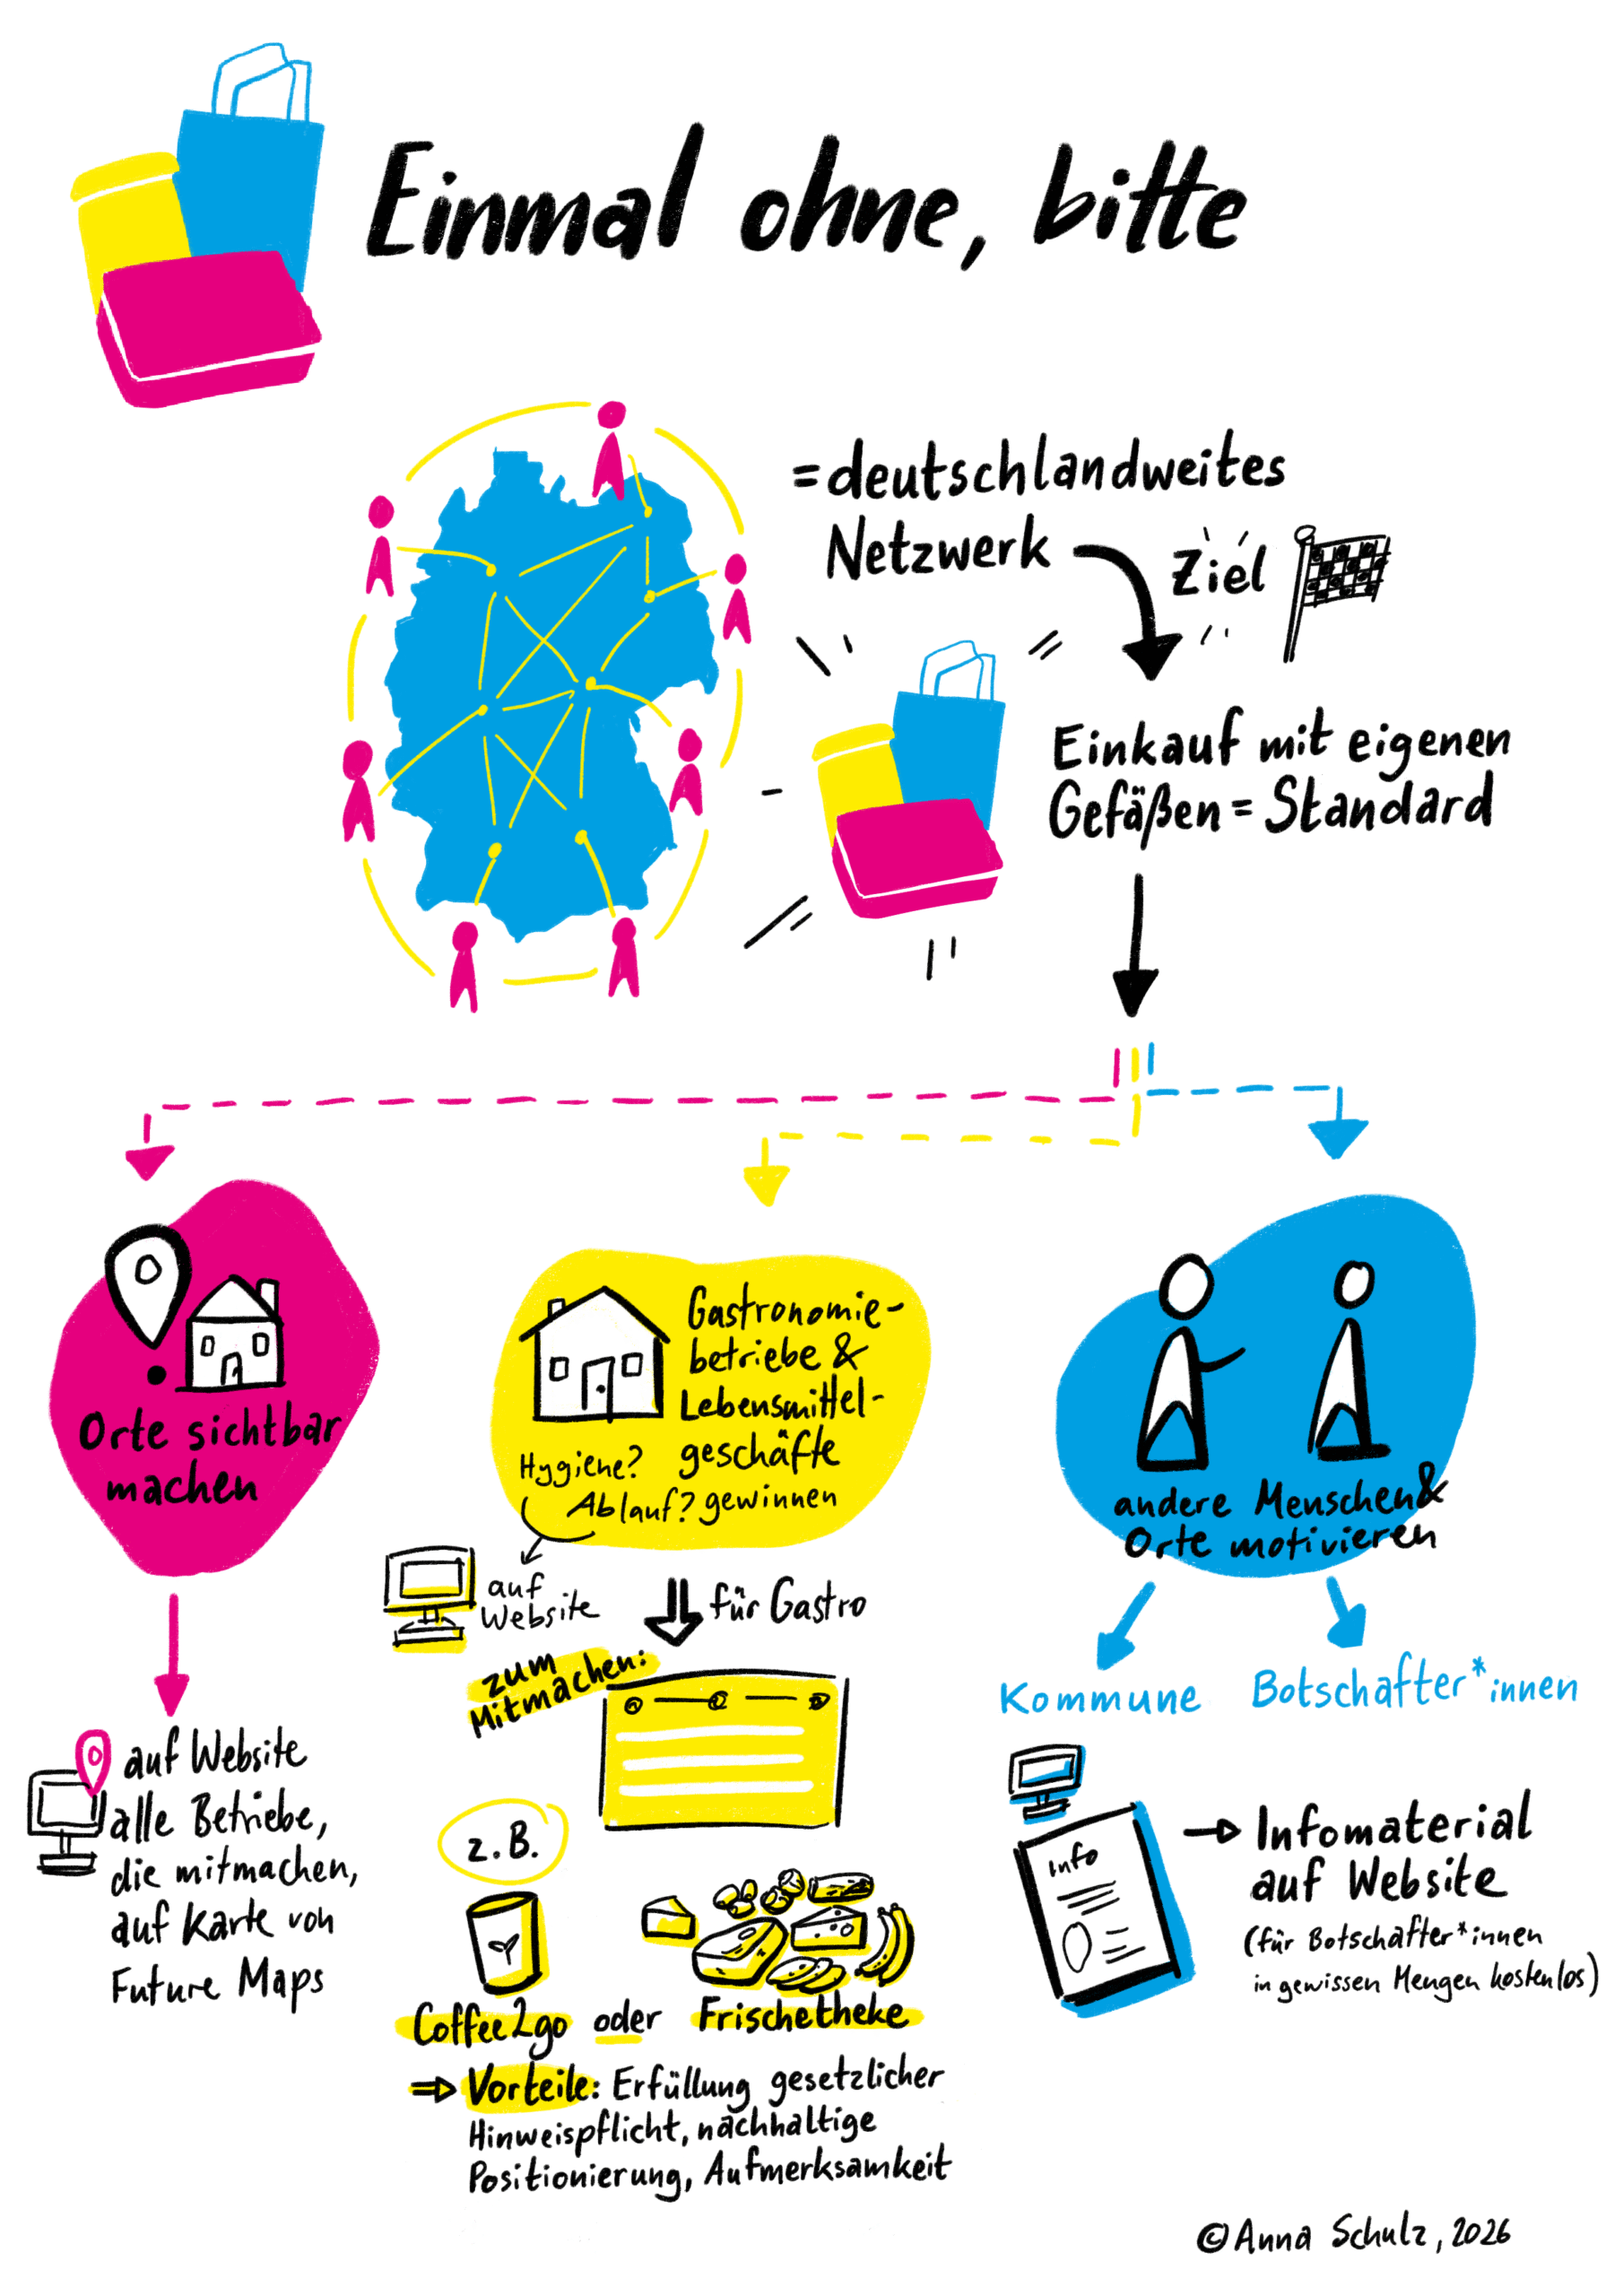 Einmal ohne, bitte
= deutschlandweites
Netzwerk
Ziel
Einkauf mit eigenen
Gefäßen = Standard
Orte sichtbar
machen
auf Website
alle Betriebe,
die mitmachen,
auf Karte von
Future Maps
Gastronomie-
betriebe &
Lebensmittel-
geschäfte
gewinnen
Hygiene?
Ablauf?
auf
Website
für Gastro
zum
Mitmachen:
z.B.
Coffee2go oder Frischetheke
⇒ Vorteile: Erfüllung gesetzlicher
Hinweispflicht, nachhaltige
Positionierung, Aufmerksamkeit
andere Menschen &
Orte motivieren
Kommune
Botschafter*innen
Info
→ Infomaterial
auf Website
(für Botschafter*innen
in gewissen Mengen kostenlos)
© Anna Schulz, 2026